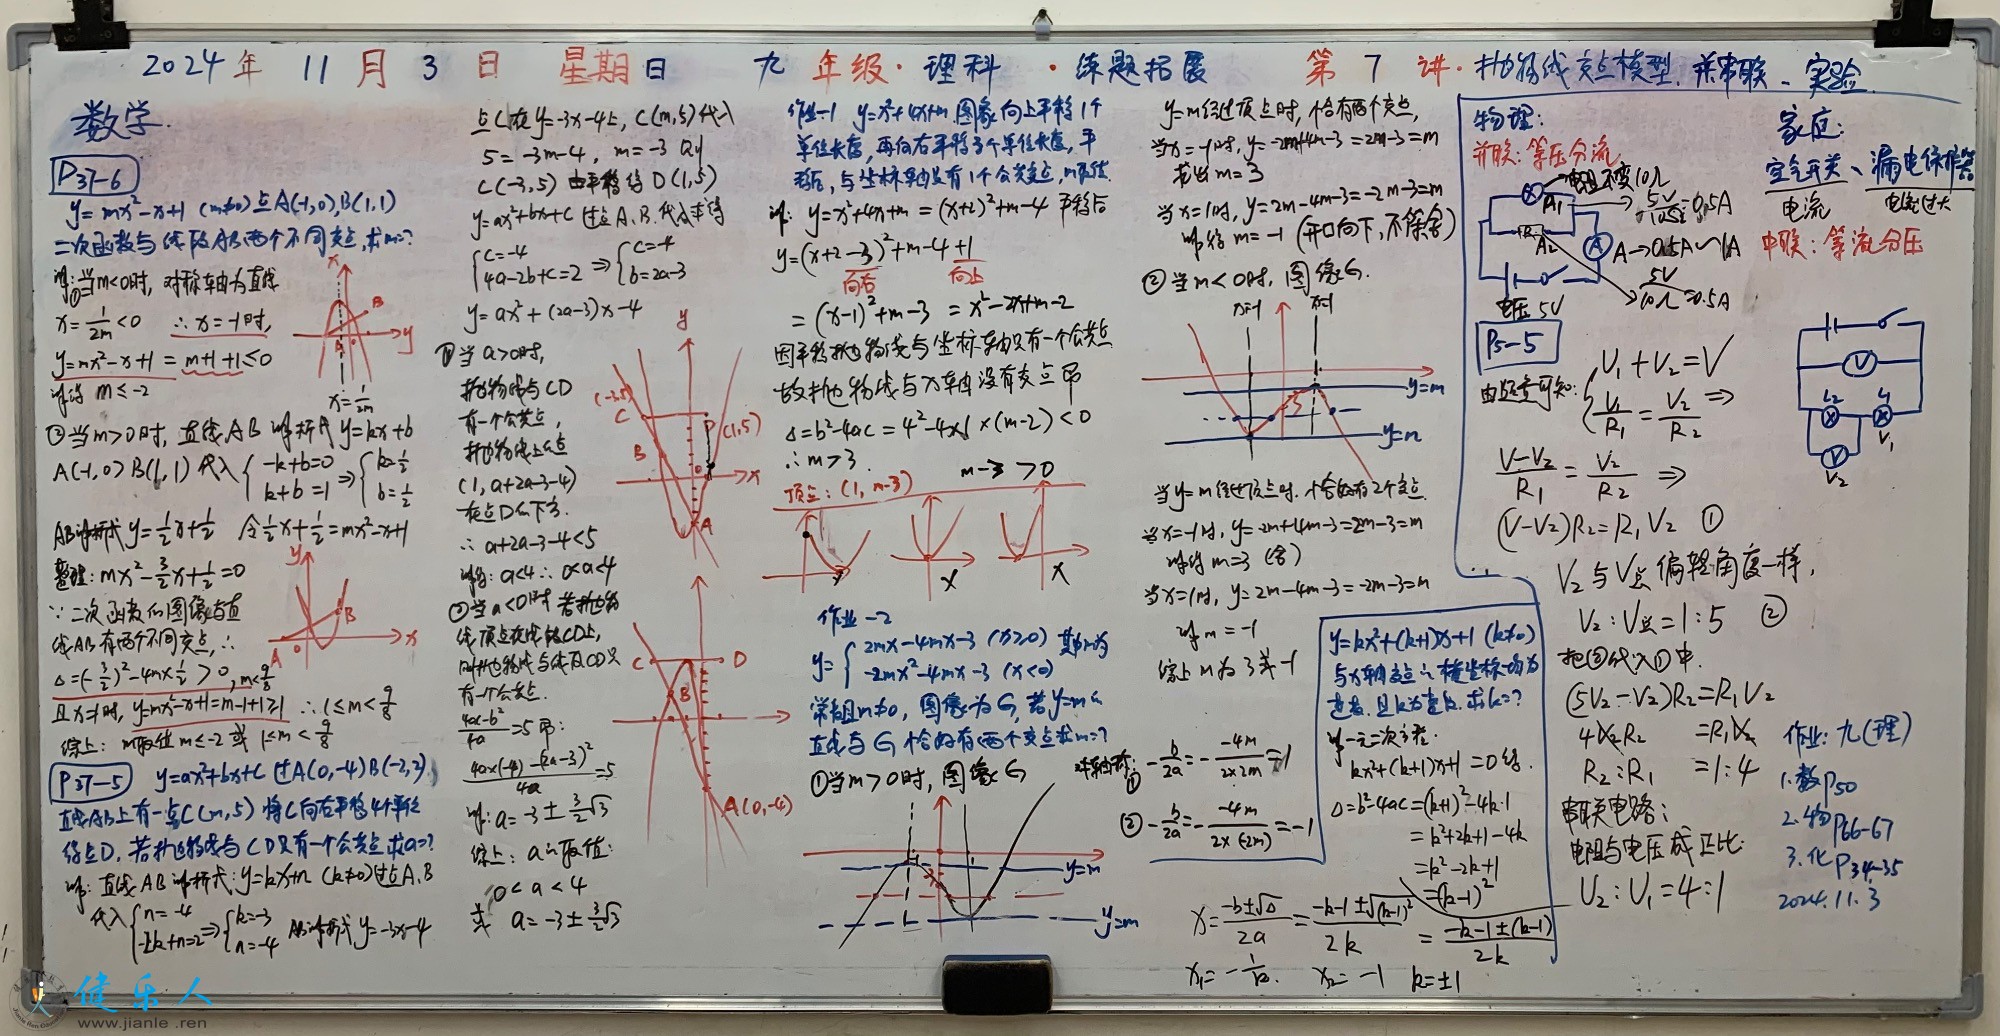 2024年 11月 3日 星期日 九年级·理科·练题拓展 第7讲·抛物线交点模型.并串联、实验
数学
P37-6
y=mx²-x+1 (m≠0) 点A(-1,0),B(1,1)
二次函数与线段AB两个不同交点,求m=?
解:①当m<0时, 对称轴为直线
x=1/2m<0 ∴x=-1时,
y=mx²-x+1=m+1+1≤0
解得 m≤-2
x=1/2m
②当m>0时, 直线AB解析式 y=kx+b
A(-1,0) B(1,1) 代入 {-k+b=0 k+b=1 ⇒ {k=1/2 b=1/2
AB解析式 y=1/2x+1/2 令1/2x+1/2=mx²-x+1
整理: mx²-3/2x+1/2=0
∵二次函数的图像与直
线AB有两个不同交点,∴
Δ=(-3/2)²-4m×1/2>0, m<9/8
且x=1时, y=mx²-x+1=m-1+1≥1 ∴1≤m<9/8
综上: m取值 m≤-2 或 1≤m<9/8
P37-5 y=ax²+bx+c 过A(0,-4) B(-2,2)
直线AB上有一点C(m,5) 将C向右平移4个单位
得点D, 若抛物线与CD只有一个公共点 求a=?
解: 直线AB解析式: y=kx+n (k≠0)过点A、B
代入 {n=-4 -2k+n=2 ⇒ {k=-3 n=-4 AB解析式 y=-3x-4
点C在y=-3x-4上, C(m,5)代入
5=-3m-4, m=-3 则
C(-3,5) 由平移得 D(1,5)
y=ax²+bx+c 过点A、B.代入求得
{c=-4 4a-2b+c=2 ⇒ {c=-4 b=2a-3
y=ax²+(2a-3)x-4
①当a>0时,
抛物线与CD
有一个公共点,
抛物线上的点
(1, a+2a-3-4)
在点D的下方.
∴a+2a-3-4<5
解得: a<4 ∴0<a<4
②当a<0时 若抛物
线顶点在线段CD上,
则抛物线与线段CD只
有一个公共点.
4ac-b²/4a=5 即:
4a×(-4)-(2a-3)²/4a=5
解: a=-3±3/2√3
综上: a的取值:
0<a<4
或 a=-3±3/2√3
(-3,5) C D (1,5)
B A x y
C D
B
A(0,-4)
作业-1 y=x²+4x+m 图象向上平移1个
单位长度,再向右平移3个单位长度,平
移后,与坐标轴只有1个公共点,m取值
解: y=x²+4x+m=(x+2)²+m-4 平移后
y=(x+2-3)²+m-4+1
向右 向上
=(x-1)²+m-3=x²-2x+m-2
因平移抛物线与坐标轴只有一个公共点
故抛物线与x轴没有交点 即
Δ=b²-4ac=4²-4×1×(m-2)<0
∴m>3 m-3>0
顶点: (1, m-3)
作业-2
y={2mx-4mx-3 (x≥0) 其中m为
-2mx²-4mx-3 (x<0)
常数且m≠0, 图象为G, 若y=m的
直线与G恰好有两个交点求m=?
①当m>0时, 图像G
y=m
y=m
对称轴:
① -b/2a=-(-4m)/(2×2m)=1
② -b/2a=-(-4m)/(2×(-2m))=-1
y=m经过顶点时, 恰有两个交点,
当x=-1时, y=-2m+4m-3=2m-3=m
求出m=3
当x=1时, y=2m-4m-3=-2m-3=m
解得 m=-1 (开口向下,不符舍)
②当m<0时, 图像G.
x=-1 x=1
y=m
y=m
当y=m经过顶点时. 恰好有2个交点.
当x=-1时, y=-2m+4m-3=2m-3=m
解得m=3 (舍)
当x=1时, y=2m-4m-3=-2m-3=m
解m=-1
综上m为3或-1
y=kx²+(k+1)x+1 (k≠0)
与x轴交点的横坐标均为
整数. 且k为整数. 求k=?
解一元二次方程.
kx²+(k+1)x+1=0 得.
Δ=b²-4ac=(k+1)²-4k·1
=k²+2k+1-4k
=k²-2k+1
=(k-1)²
x=-b±√Δ/2a=-k-1±√(k-1)²/2k=-k-1±(k-1)/2k
x₁=-1/k. x₂=-1 k=±1
物理:
并联: 等压分流
电阻不变10Ω
A₁ → 5V/10Ω=0.5A
A₂
A→0.5A~1A
→ 5V/10Ω=0.5A
电压5V
家庭:
空气开关、漏电保护器
电流 电流过大
串联: 等流分压
P5-5
由题意可知: {V₁+V₂=V V₁/R₁=V₂/R₂ ⇒
V-V₂/R₁=V₂/R₂ ⇒
(V-V₂)R₂=R₁V₂ ①
V₂与V总偏转角度一样,
V₂:V总=1:5 ②
把②代入①中.
(5V₂-V₂)R₂=R₁V₂
4V₂R₂=R₁V₂
R₂:R₁=1:4
串联电路:
电阻与电压成正比
U₂:U₁=4:1
V
L₂ L₁
V₁
V
V₂
作业: 九(理)
1.数P50
2.物P66-67
3.化P34-35
2024.11.3
健乐人
www.jianle.ren